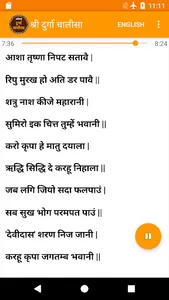 11:11
श्री दुर्गा चालीसा
ENGLISH
7:36
8:24
आशा तृष्णा निपट सतावै |
रिपु मुरख हो अति डर पावै ||
शत्रु नाश कीजे महारानी |
सुमिरो इक चित्त तुम्हें भवानी ||
करो कृपा हे मातु दयाला |
ऋद्धि सिद्धि दे करहू निहाला ||
जब लगि जियो सदा फलपाउं |
सब सुख भोग परमपत पाउं ||
'देवीदास' शरण निज जानी |
करहू कृपा जगतम्ब भवानी ||